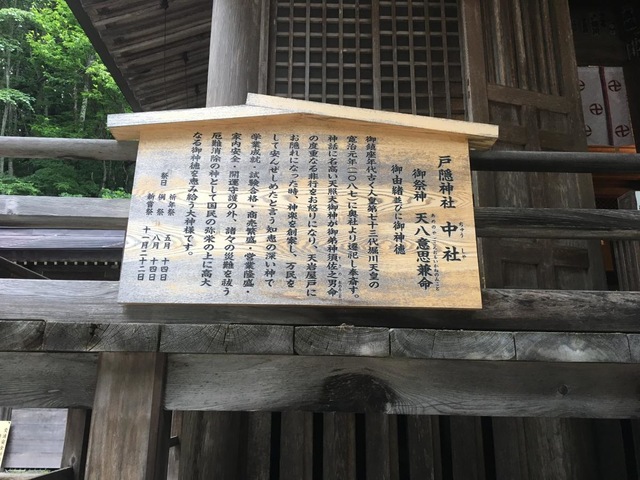 戸隠神社 中社
御祭神 天八意思兼命
御由緒並びに御神徳
御鎮座年代古く人皇第七十三代堀川天皇の
寛治元年(一〇八七)に奥社より遷祀し奉斎す。
神話に名高い天照大神が御弟神須佐之男命
の度重なる御行をお怒りになり、天岩屋戸に
お隠れになった時、神楽を創案し、万民を
して安んぜしめたと言う知恵の深い神で
学業成就・試験合格・商売繁盛・営業隆盛・
家内安全・開運守護の外、諸々の災難を祓う
厄難消除の神として国民の弥栄の上に高大
なる御神徳を恵み給う大神様です。
祭日 祈年祭 五月 十四日
例祭 八月 十四日
新嘗祭 十一月二十二日